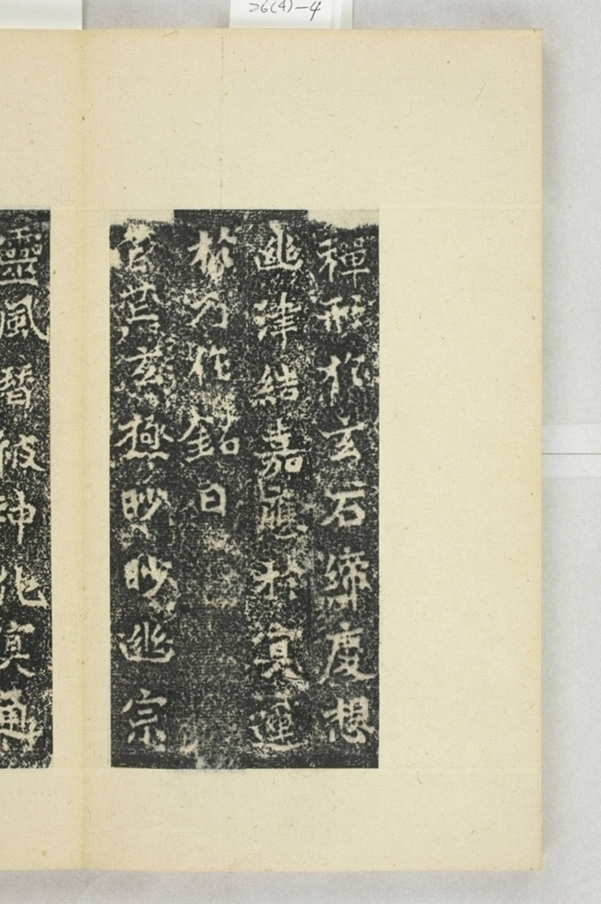 禪形於玄石度想
幽津結嘉應於冥運
於乃作銘曰
慈極眇眇幽宗
靈風潛被神化冥通
6(4)-4